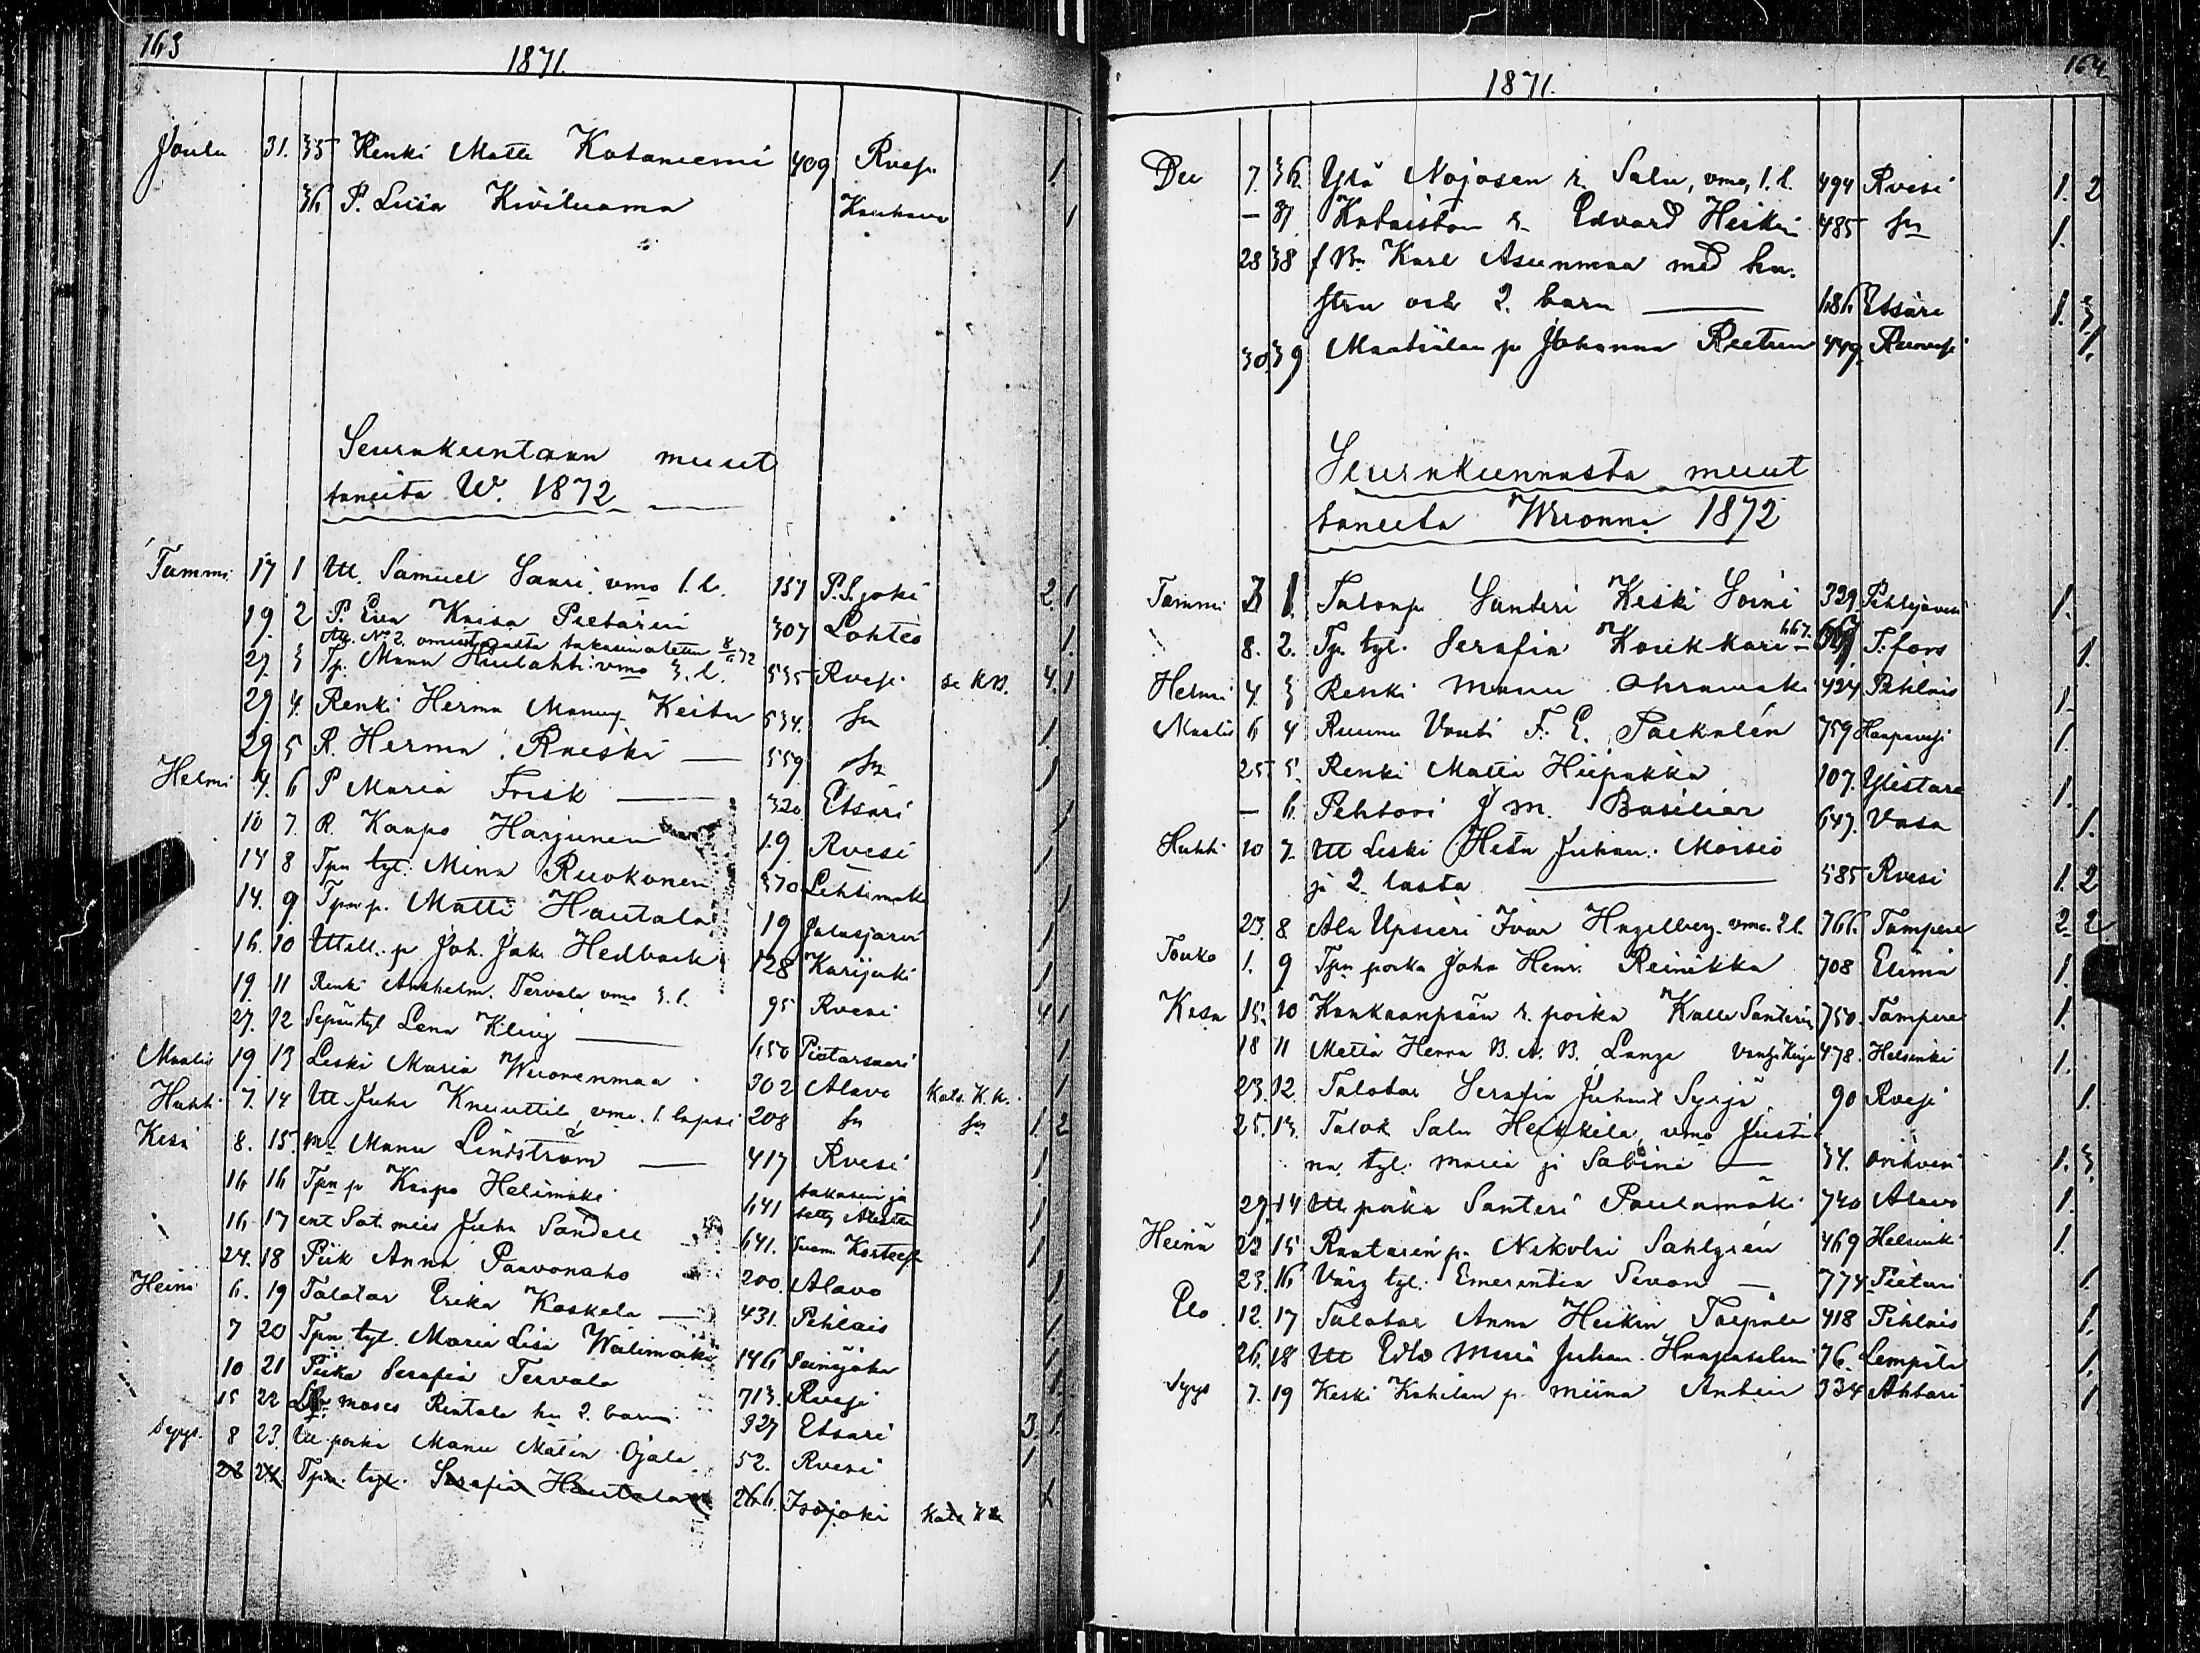 163
1871.
Joulu 31. 35 Renki Matti Kataniemi 409 Rvesi 1.
36 P. Luisa Kiviluoma Kauhava 1
Seurakuntaan muut
taneita W. 1872
Tammi 17 1 Itll. Samuel Saari vmo 1. l. 157 P.S.joki 2. 1
19. 2 P. Eva Kaisa Pietarin 307 Lohteo 1.
27. 3 Tp. Manu vmo 3. l. 535 Rvesi se K.B. 4. 1
29 4. Renki Herman Manu Keitu 534. sn 1.
29 5 R. Herman Raiski 559 sn 1
Helmi 4. 6 P Maria Frisk 320 Etsäri 1
10 7. R. Kaapo Harjunen 19. Rvesi 1
14 8 Tpn tyt. Mina Ruokonen 370 Lehtimäki 1
14. 9 Tpn p. Matti Hautala 19 Jalasjärvi 1
16. 10 Itsell. p Joh. Jak. Hedback 128 Karijoki 1
19. 11 Renki Anshelm. Tervala vmo 3. l. 95 Rvesi 4 1
27. 12 Sepän tyt Lena Kling 650 Pietarsaari 1
Maalis 19. 13 Leski Maria Wuorenmaa 302 Alavo Kats. K.k. 1
Huhti 7. 14 Itll Juha Knuuttila vmo. 1. lapsi 208 sn sn 1. 2
Kesä 8. 15. Manu Lindström 417 Rvesi 1
16 16 Tpn p Kaapo Helimäki 641 takasin ja 1
16. 17 ent Sot. mies Juha Sandell 641. 1
24. 18 Piik Anna Paavonaho 200. Alavo 1.
Heinä 6. 19 Talotar Erika Koskela 431. Pihlais 1.
7 20 Tpn tyt Maria Lisa Walimäki 146 Seinäjoki 1
10 21 Piika Serafia Tervala 713. Rvesi 1.
15 22 Moses Rintala hu 2. barn 327 Etsäri 3. 1.
Syys. 8 23. Itll poika Manu Matin Ojala 52. Rvesi 1
28 24. Tpn. tyt. Serafia Hautala 266. Isojoki Kats K.k. 1
164.
1871.
De 7. 36. Yrä Nojosen r. Salu, vmo, 1. l. 494 Rvesi 1. 2
— 37. Kataiston r. Edvard Heikin 485 sn 1.
28 38 f Bn Karl Asunmaa med hu-
stru och 2. barn 686 Etsäri 1. 3.
30. 39 Mantsilan p Johanna Reetun 449. Ruovesi 1.
Seurakunnasta muut
taneita Wuonna 1872
Tammi 3 1. Talonp Santeri Keski Soini 329. Pihlajavesi 1.
8. 2. Tp. tyt. Serafia Koukkari 667. T.fors 1.
Helmi 4. 3 Renki Manu 424 Pihlais 1.
Maalis 6 4 Ruunu Vouti F. E. Packalén 759 Haapavesi 1.
25 5. Renki Matti Hiipakka 107. Ylistaro 1.
— 6. Pehtori J M. Basilier 647. Vasa 1.
Huhti 10 7. Itll Leski Heta Juhan. Moisio
ja 2. lasta 585 Rvesi 1. 2
23. 8 Ala Upsieri Ivar Hagelberg vmo. 2 l. 766. Tampere 2. 2
Touko 1. 9 Tpn poika Joha Henr. Reinikka 708 Elimä 1.
Kesä 15. 10 Kankaanpään r. poika Kalle Santerin 750. Tampere 1.
18 11 Metta Herra B. A. B. Lange 478. Helsinki 1.
23. 12. Talotar Serafia Juhant Syrjä 90 Rvesi 1.
25. 13. Talok Salu Heikkilä, vmo Justi
na, tyt. Maria ja Sabina 34. Orihvesi 1. 3.
29. 14 Itll poika Santeri Paulamäki 740 Alavo 1.
Heinä 22 15 Raatarin p. Nikolai Sahlgrén 469 Helsinki 1.
23. 16 Värj tyt. Emerentia Sevon 774 Pietari 1.
Elo 12. 17 Talotar Anna Heikin Taipale 418 Pihlais 1.
26. 18 Itll Edla Maria Juhan. Haapasalmi 76. Lempälä 1.
Syys 7. 19 Keski Kahilan p. Miina Antin 334 Ahtäri 1